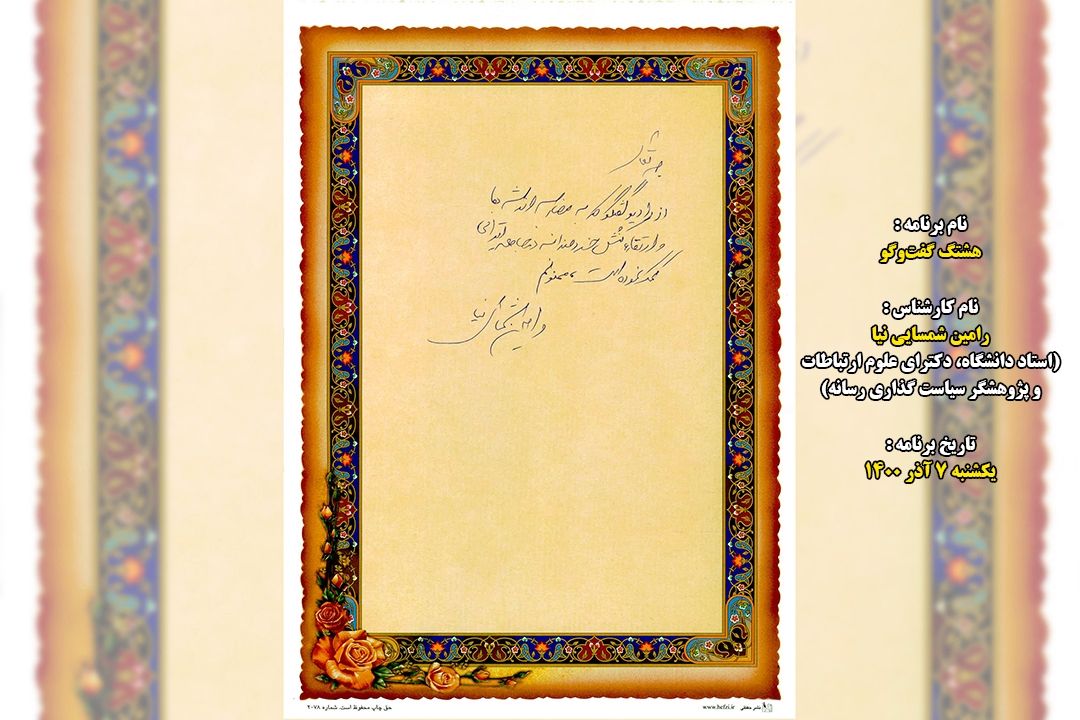 به نام تعالی
از رادیو گفتگو که به مقایسه اندیشه ها
و ارتقاء کنش خردمندانه در جامعه ایرانی
کمک نموده است، ممنونم
رامین شمسایی نیا
نام برنامه :
هشتگ گفت‌وگو
نام کارشناس :
رامین شمسایی نیا
(استاد دانشگاه، دکترای علوم ارتباطات
و پژوهشگر سیاست گذاری رسانه)
تاریخ برنامه :
یکشنبه ۷ آذر ۱۴۰۰
حق چاپ محفوظ است. شماره ۲۰۷۸
www.hefzi.ir نشر حفظی